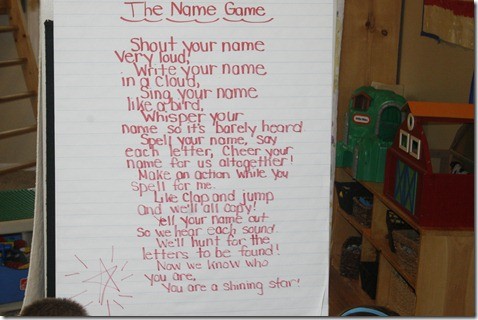 The Name Game
Shout your name
very loud,
Write your name
in a cloud,
Sing your name
like a bird,
Whisper your
name so it's barely heard
Spell your name, say
each letter, Cheer your
name for us altogether!
Make an action while you
spell for me.
Like clap and jump
and we'll all copy!
Yell your name out
so we hear each sound.
We'll hunt for the
letters to be found!
Now we know who
you are,
You are a shining star!